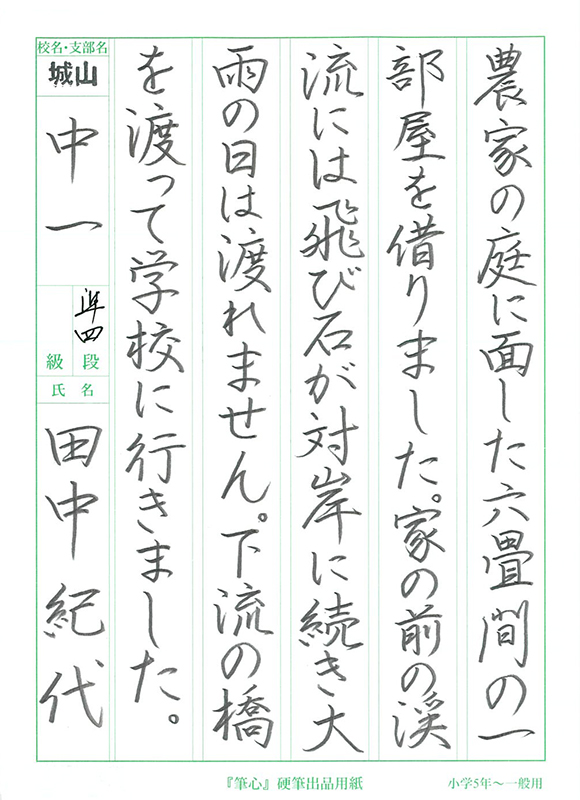 農家の庭に面した六畳間の一
部屋を借りました。家の前の渓
流には飛び石が対岸に続き大
雨の日は渡れません。下流の橋
を渡って学校に行きました。
校名・支部名
城山
中一
準四
段
級
氏名
田中紀代
『筆心』硬筆出品用紙
小学5年〜一般用